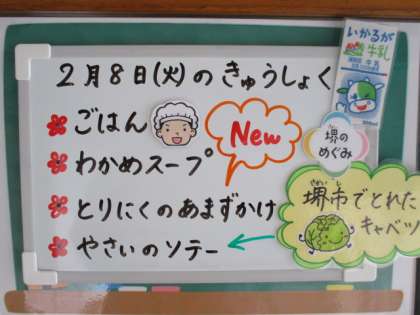 2月8日(火)のきゅうしょく
ごはん
わかめスープ
とりにくのあまずかけ
やさいのソテー
New
いかるが
牛乳
堺の
めぐみ
堺市でとれた
キャベツ